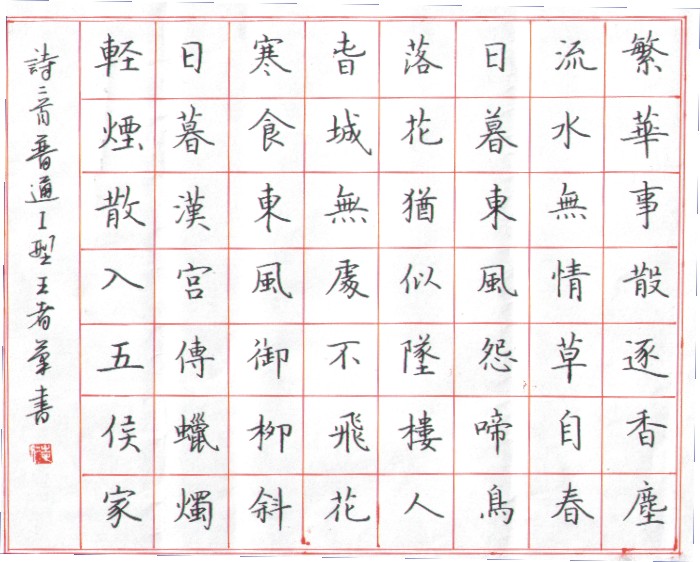 繁華事散逐香塵
流水無情草自春
日暮東風怨啼鳥
落花猶似墜樓人
旾城無處不飛花
寒食東風御柳斜
日暮漢宮傳蠟燭
軽煙散入五侯家
詩二首普通I型王者筆書